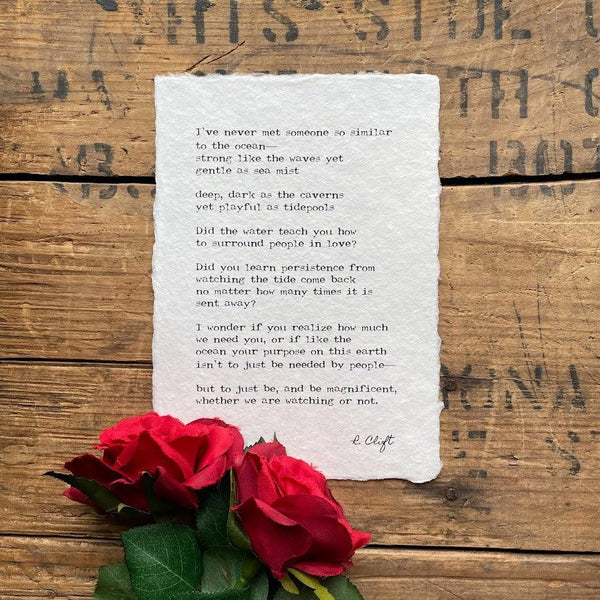 THIS SIDE
I've never met someone so similar
to the ocean—
strong like the waves yet
gentle as sea mist
deep, dark as the caverns
yet playful as tidepools
Did the water teach you how
to surround people in love?
Did you learn persistence from
watching the tide come back
no matter how many times it is
sent away?
I wonder if you realize how much
we need you, or if like the
ocean your purpose on this earth
isn't to just be needed by people—
but to just be, and be magnificent,
whether we are watching or not.
R. Clift